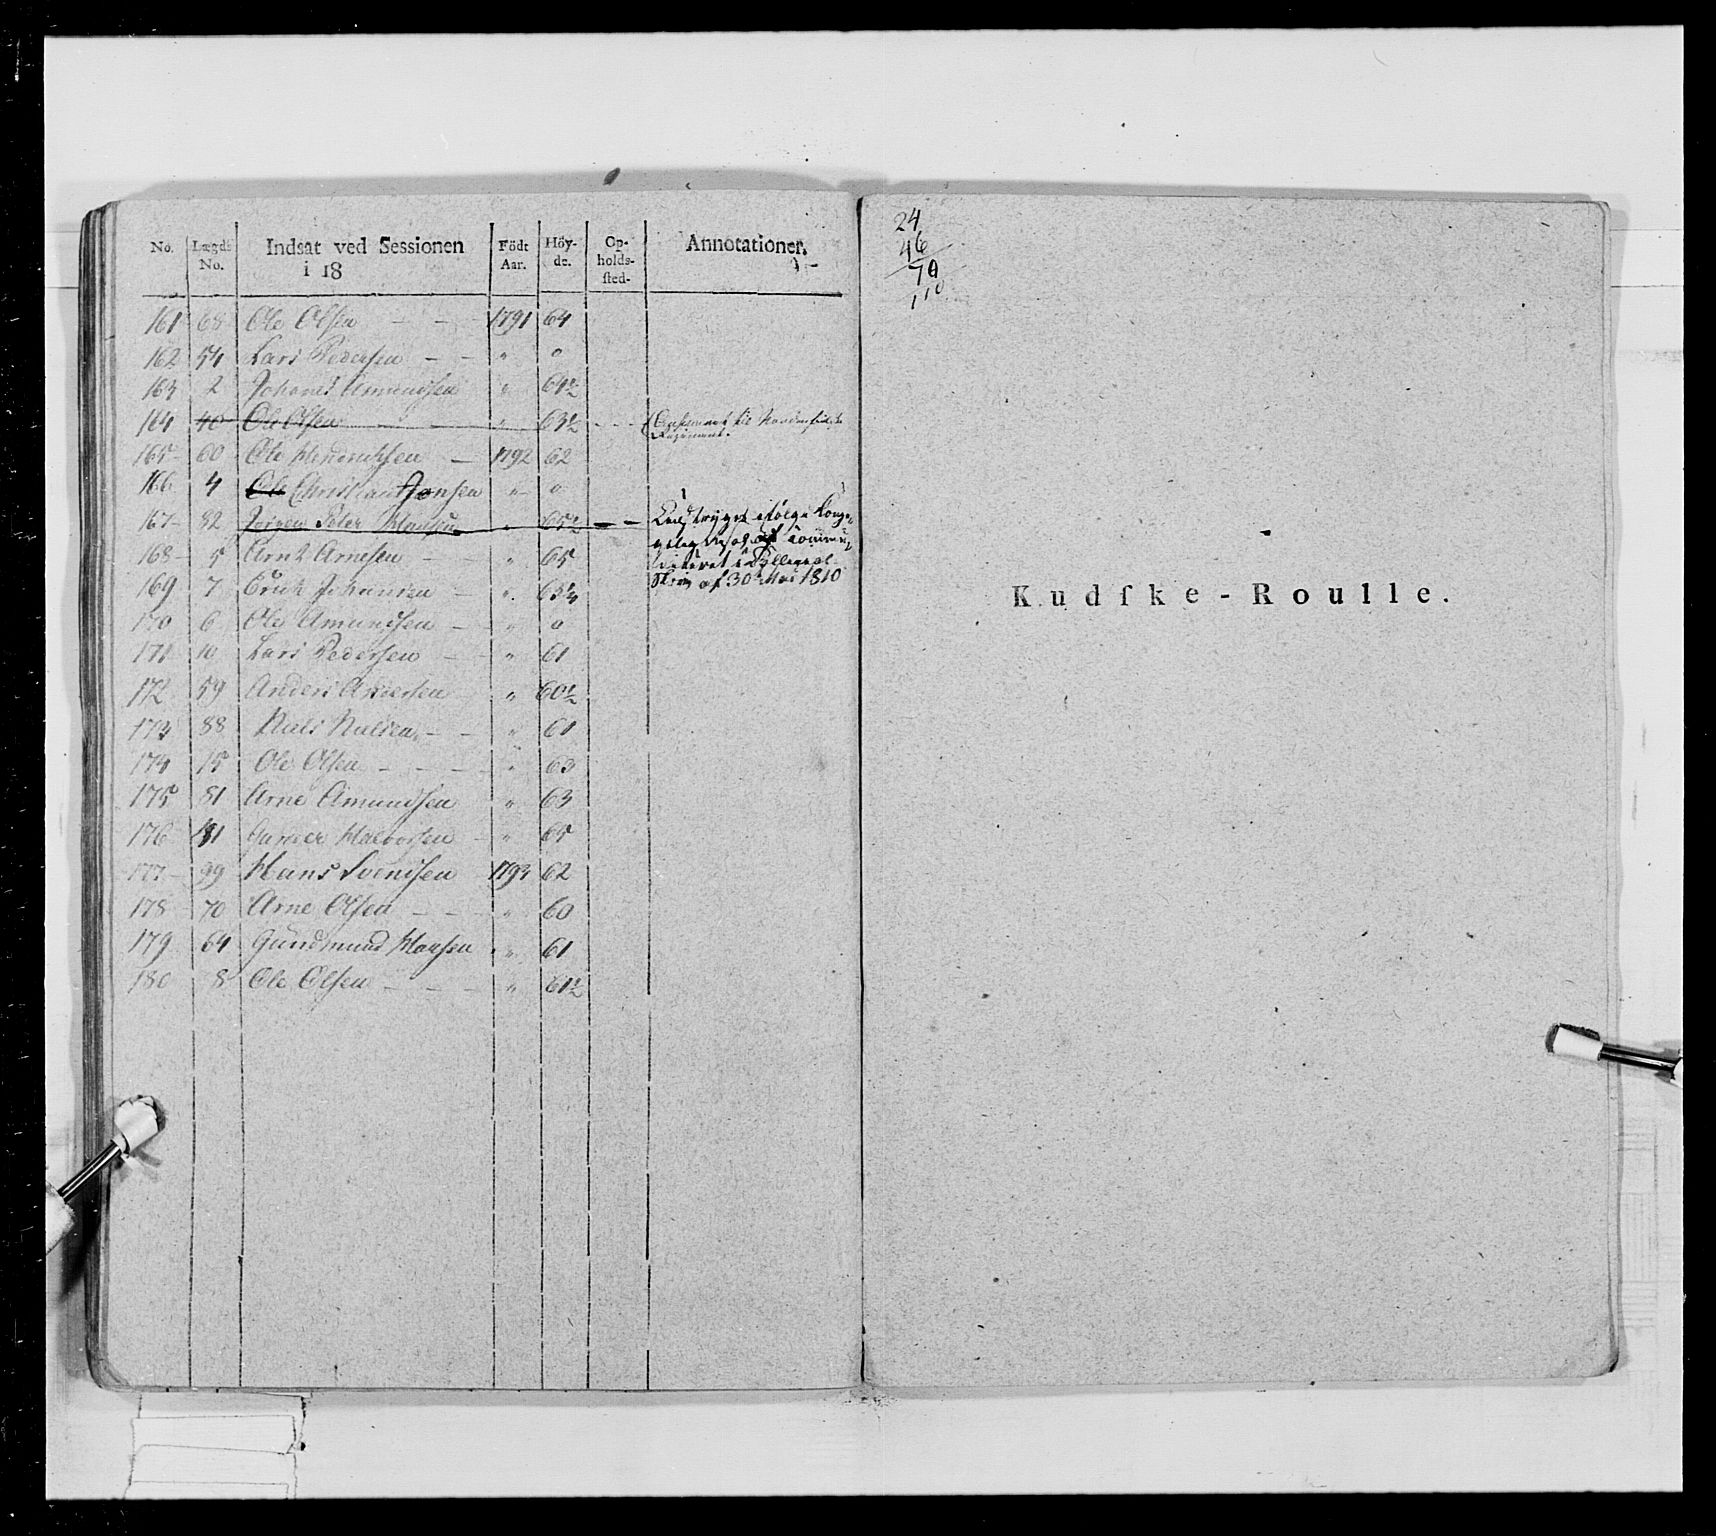 No. Lægds No. Indsat ved Sessionen i 18 Födt Aar. Höy-de. Op-holds-sted- Annotationer.
161 68 Ole Olsen - - 1791 64
162 54 Lars Pedersen - - " o
163 2 Johanes Amundsen " 64½
164 40 Ole Olsen - - " 63½ - -
Regiment.
165 60 Ole Hendrichsen - 1792 62
166 4 Ole Christian Jonsen " o
167 82 Jörgen Peter Hansen " 65½ - -
168 5 Arnt Arnesen - " 65
Skriv af 30te Mai 1810
169 7 Erich Johansen - " 63¼
170 6 Ole Amundsen - " o
171 10 Lars Pedersen - " 61
172 59 Anders Andersen " 60½
173 88 Niels Nielsen - - " 61
174 15 Ole Olsen - - - " 63
175 81 Arne Amundsen " 63
176 Gunder Halvorsen - " 65
177 99 Hans Svendsen 1793 62
178 70 Arne Olsen - - " 60
179 64 Gundmund Hansen " 61
180 8 Ole Olsen - - - " 61½
24
46
70
110
Kudſke-Roulle.